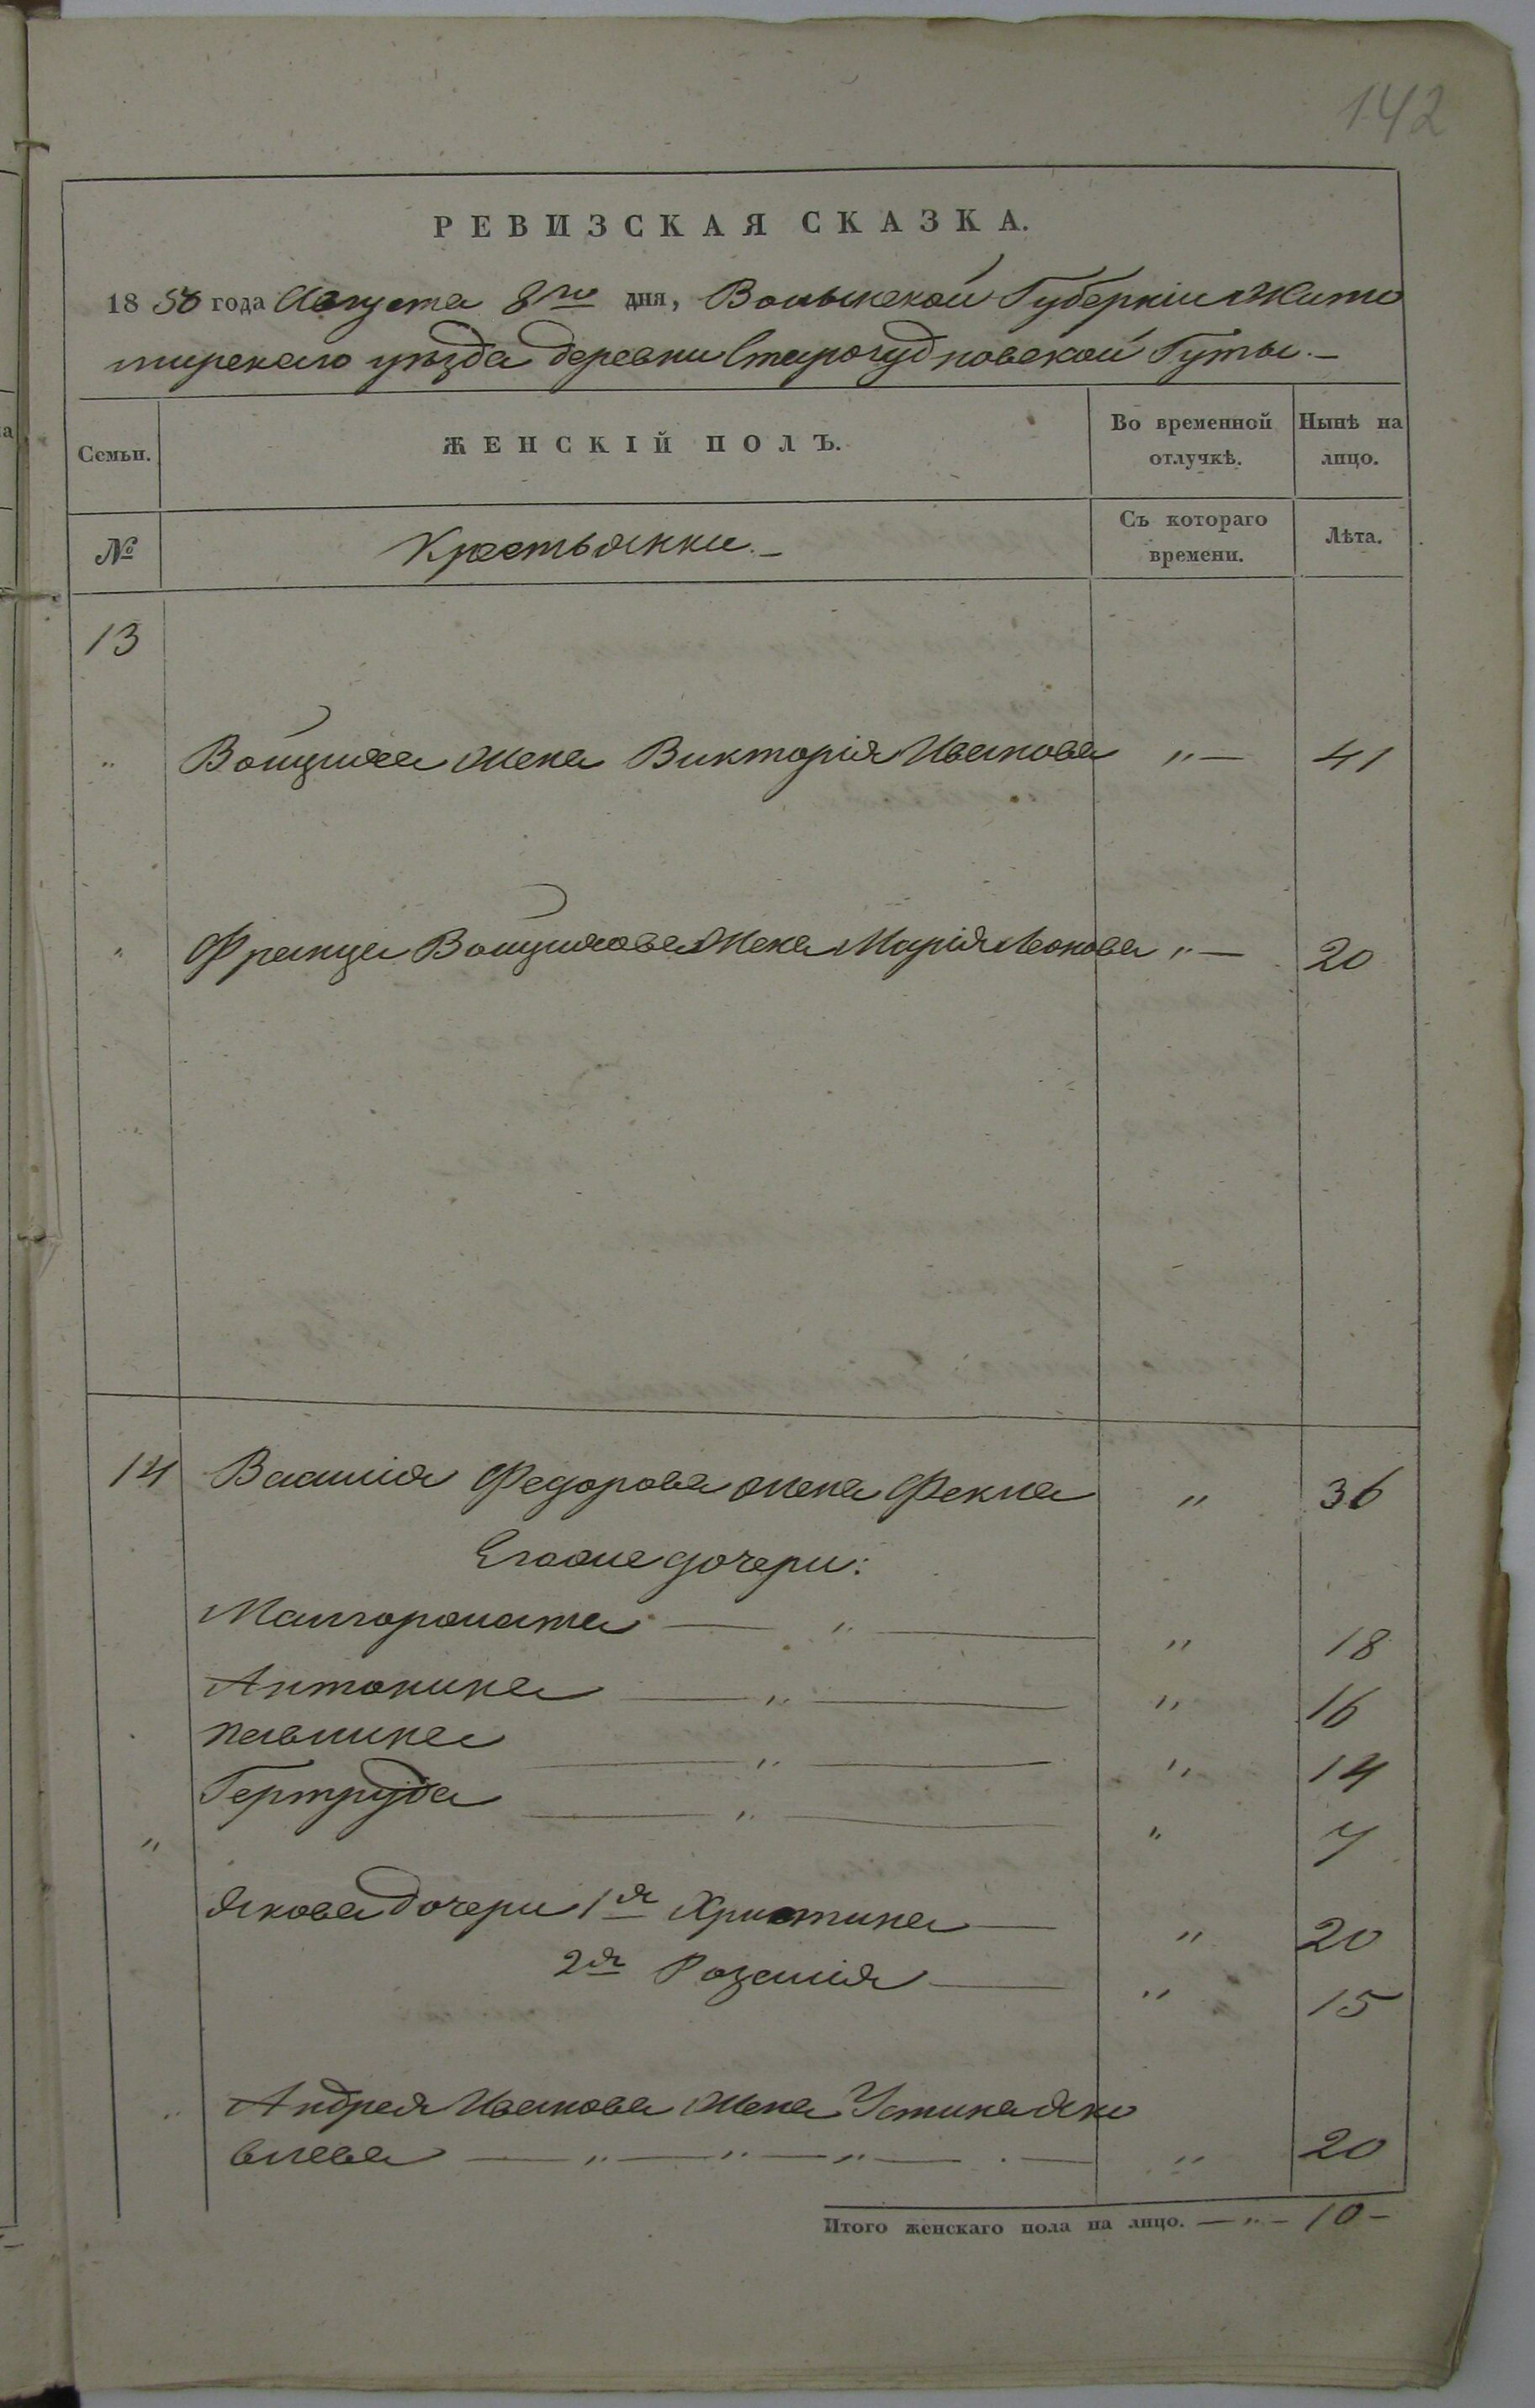 142
РЕВИЗСКАЯ СКАЗКА.
1858 года Августа 8го дня, Волынской Губерніи Жито
мирскаго уѣзда деревни Старочудновской Гуты.—
Семьи. ЖЕНСКІЙ ПОЛЪ. Во временной отлучкѣ. Нынѣ на лицо.
№ Крестьянки.— Съ котораго времени. Лѣта.
13
" Войцѣха жена Викторія Иванова "— 41
" Франца Войцѣхова жена Марія Леонова "— 20
14 Василія Федорова жена Фекла " 36
Егоже дочери:
Малгоржата — " — " 18
Антонина — " — " 16
Павлина — " — " 14
Гертруда — " — " 7
" Якова дочери 1я Христина — " 20
2я Розалія — " 15
" Андрея Иванова жена Устина Яко
влева — " — " — " — . — " 20
Итого женскаго пола на лицо. — " — 10 —